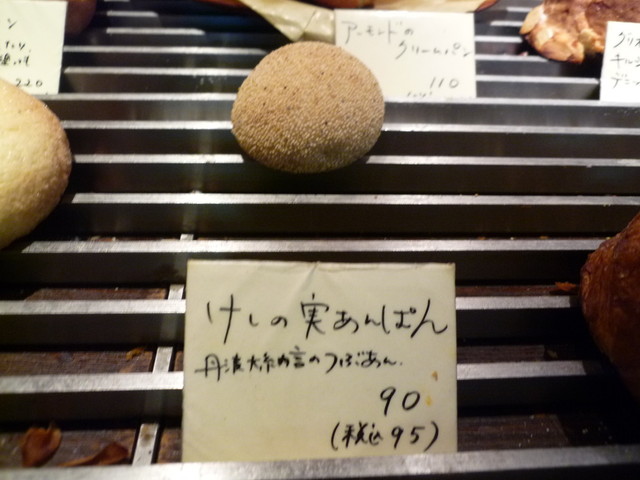 ン
220
アーモンドの
クリームパン
110
けしの実あんぱん
丹波大納言のつぶあん.
90
(税込95)